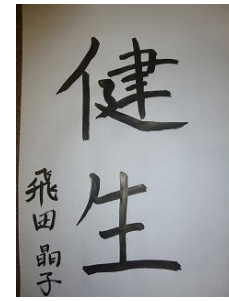 健生
飛田晶子